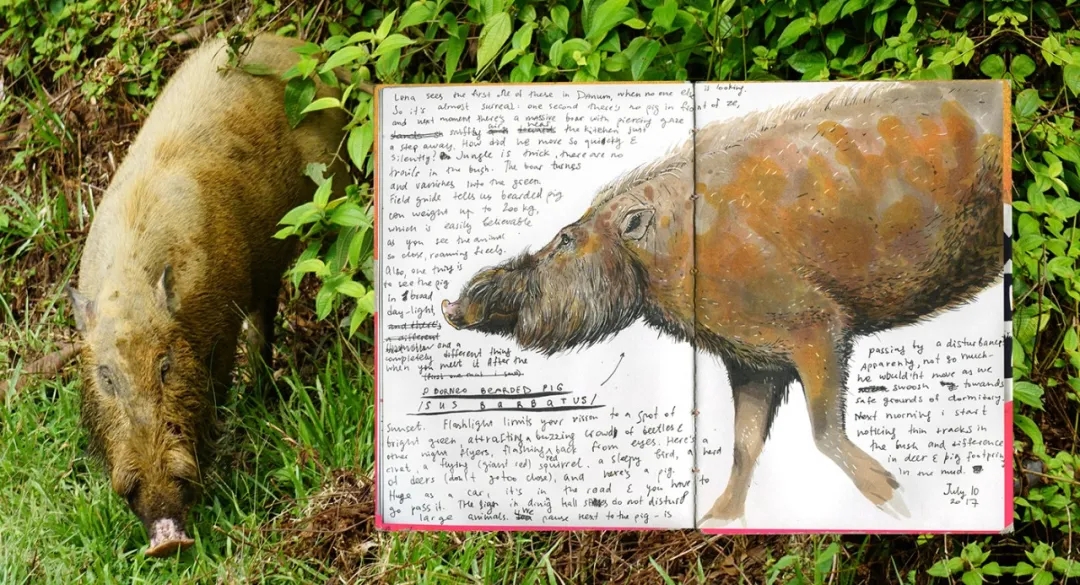 Lena sees the first of these in Danum, when no one else is looking.
So it's almost surreal: one second there's no pig in front of ze,
and next moment there's a massive boar with piercing gaze
swiftly near the kitchen just
a step away. How did he move so quietly &
silently? Jungle is thick, there are no
trails in the bush. The boar turns
and vanishes into the green.
Field guide tells us bearded pig
can weight up to 200 kg,
which is easily believable
as you see the animal
so close, roaming freely.
Also, one thing is
to see the pig
in broad
day-light,
and there's
a different
and a
completely different thing
when you meet it after the
BORNEO BEARDED PIG
/SUS BARBATUS/
sunset. Flashlight limits your vision to a spot of
bright green, attracting a buzzing crowd of beetles &
other night flyers, flashing back from eyes. Here's a
civet, a flying (giant red) squirrel, a sleepy bird, a herd
of deers (don't go too close), and here's a pig.
Huge as a car, it's in the road & you have to
go pass it. The sign in dining hall says do not disturb
large animals. We pause next to the pig - is
passing by a disturbance?
Apparently, not so much -
he wouldn't move as we
swoosh towards
safe grounds of dormitory.
Next morning i start
noticing thin tracks in
the bush and difference
in deer & pig footprints
in one mud.
July 10
2017